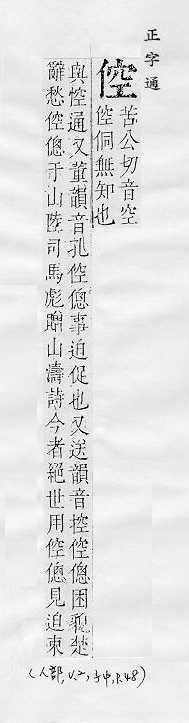 正字通
倥
苦公切音空
倥侗無知也
與悾通又董韻音孔倥傯事迫促也又送韻音控倥傯困貌楚
辭愁倥傯于山陸司馬彪贈山濤詩今者絕世用倥傯見迫束
(人部,V.2,子中,P.48)